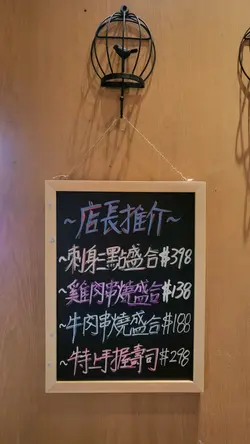 ~店長推介~
~刺身三點盛合#398
~雞肉串燒盛合#138
~牛肉串燒盛合#188
~特上手握壽司#298